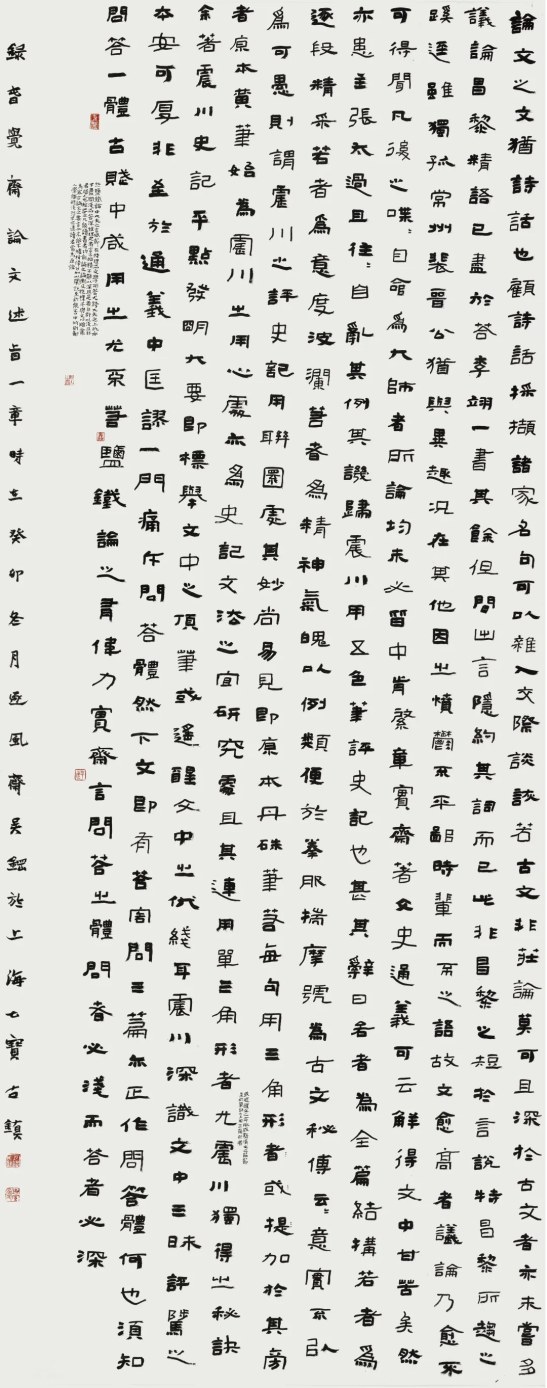 論文之文猶詩話也顧詩話採擷諸家名句可以雜入交際談諧若古文非莊論莫可且深於古文者亦未嘗多
議論昌黎精語已盡於答李翊一書其餘但間出言隱約其詞而已此非昌黎之短於言說特昌黎所趨之
蹊逕雖獨孤常州裴晉公猶與異趣況在其他因之憤鬱不平鄙時輩而不之語故文愈高者議論乃愈不
可得聞凡後之喋喋自命為大師者所論均未必皆中肯綮章實齋著文史通義可云解得文中甘苦矣然
亦患主張太過且往往自亂其例其譏歸震川用五色筆評史記也甚其辭曰若者為全篇結構若者為
逐段精采若者為意度波瀾若者為精神氣魄以例類便於拳服揣摩號為古文秘傳云云意實不以
為可愚則謂震川之評史記用聯圈處其妙尚易見即原本丹硃筆若每句用三角形者或提加於其旁
者原本黃筆始為震川之用心處亦為史記文法之宜研究處且其連用單三角形者尤震川獨得之秘訣
余著震川史記平點發明大要即標舉文中之頂筆或遙醒文中之伏綫耳震川深識文中三昧評騭之
本安可厚非至於通義中匡謬一門痛斥問答體然下文即有答客問三篇亦正作問答體何也須知
問答一體古賤中咸用之尤桼若鹽鐵論之書偉力實齋言問答之體問者必淺而答者必深
錄春覺齋論文述旨一章時在癸卯冬月逆風齋吳鎧於上海七寶古鎮